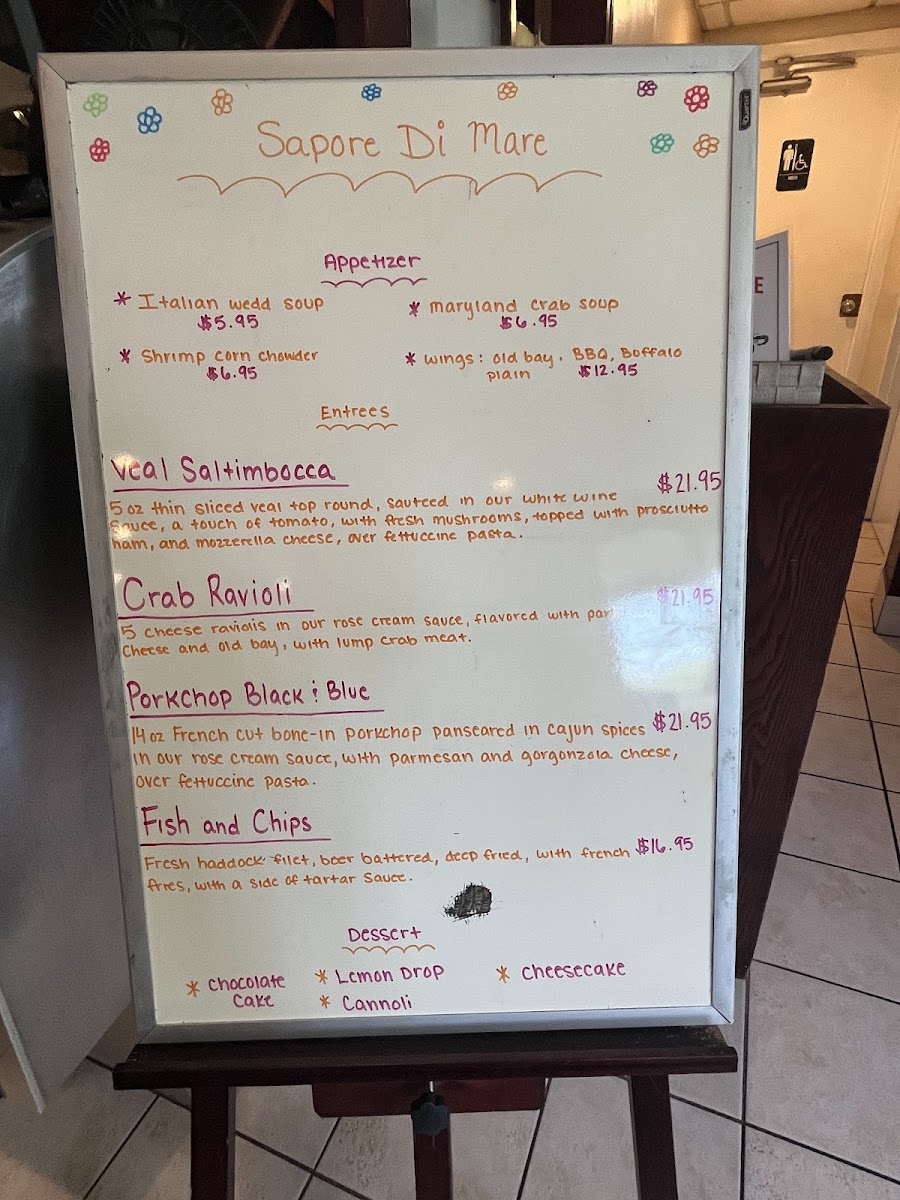 Sapore Di Mare
Appetizer
* Italian wedd soup
$5.95
* maryland crab soup
$6.95
* Shrimp corn chowder
$6.95
* wings: old bay, BBQ, Boffalo
plain $12.95
Entrees
Veal Saltimbocca $21.95
5 oz thin sliced veal top round, sauteed in our white wine
sauce, a touch of tomato, with fresh mushrooms, topped with prosciutto
ham, and mozzerella cheese, over fettuccine pasta.
Crab Ravioli $21.95
5 cheese raviolis in our rose cream sauce, flavored with
cheese and old bay, with lump crab meat.
Porkchop Black & Blue
14 oz French cut bone-in porkchop panseared in cajun spices $21.95
in our rose cream sauce, with parmesan and gorgonzola cheese,
over fettuccine pasta.
Fish and Chips
Fresh haddock filet, beer battered, deep fried, with french $16.95
fries, with a side of tartar sauce.
Dessert
* Chocolate
Cake
* Lemon Drop
* Cannoli
* Cheesecake